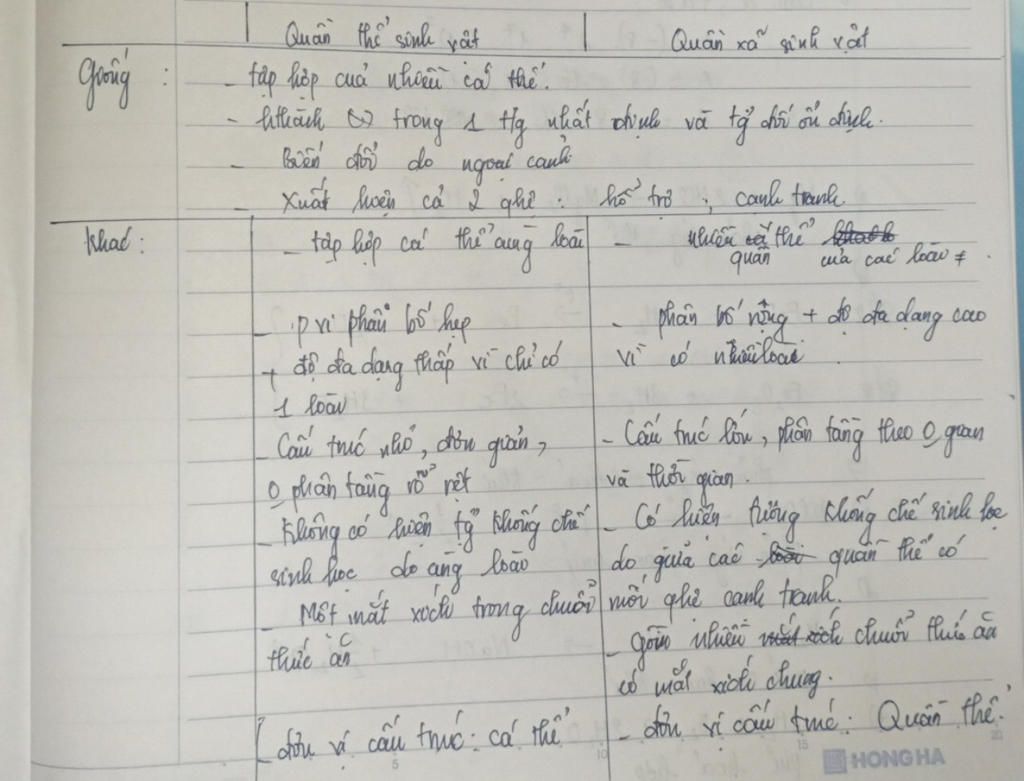 Quần thể sinh vật | Quần xã sinh vật
Giống :
- tập hợp của nhiều cá thể.
- hthành trong 1 tg nhất định và tg đối ổn định.
- Biến đổi do ngoại cảnh
- Xuất hiện cả 2 qhệ : hỗ trợ ; cạnh tranh.
Khác :
- tập hợp cá thể cùng loài
- p vi phân bố hẹp
+ độ đa dạng thấp vì chỉ có
1 loài
- Cấu trúc nhỏ, đơn giản,
0 phân tầng rõ rệt
- Không có hiện tg khống chế
sinh học do cùng loài
- Một mắt xích trong chuỗi
thức ăn
đơn vị cấu trúc : cá thể
- nhiều quần thể của các loài ≠ .
- phân bố rộng + độ đa dạng cao
vì có nhiều loài
- Cấu trúc lớn, phân tầng theo 0 gian
và thời gian.
- Có hiện tượng khống chế sinh học
do giữa các quần thể có
mối qhệ cạnh tranh.
- gồm nhiều chuỗi thức ăn
có mắt xích chung.
- đơn vị cấu trúc : Quần thể.
5 10 15 20
HONG HA